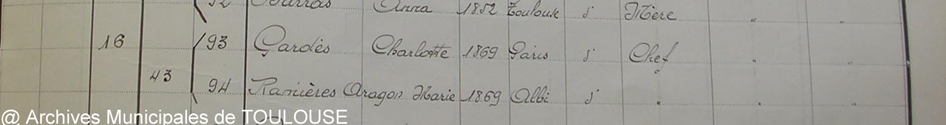 92 Anna 1852 Toulouse d° Mère
16 93 Gardès Charlotte 1869 Paris d° Chef
43 94 Ramières Aragon Marie 1869 Albi d°
@ Archives Municipales de TOULOUSE